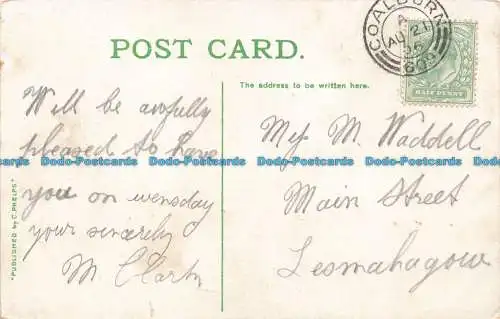 POST CARD.
The address to be written here.
COALBURN
A
AU 21
06
603
HALF PENNY
Will be awfully
pleased to have
you on wensday
your sincerely
M. Clark
Miss M. Waddell
Main Street
Lesmahagow
"PUBLISHED by C. PHELPS"
Dodo-Postcards Dodo-Postcards Dodo-Postcards Dodo-Postcards Dodo-Postcards Dodo-Postcards